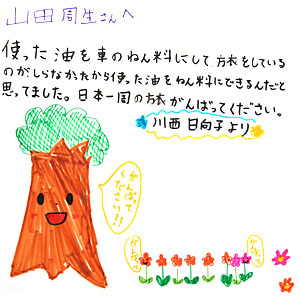 山田周生さんへ
使った油を車のねん料にして旅をしている
のがしらなかたから使った油をねん料にできるんだと
思ってました。日本一周の旅がんばってください。
川西日向子より
がんばって
ください!!
がんばって
がんばって